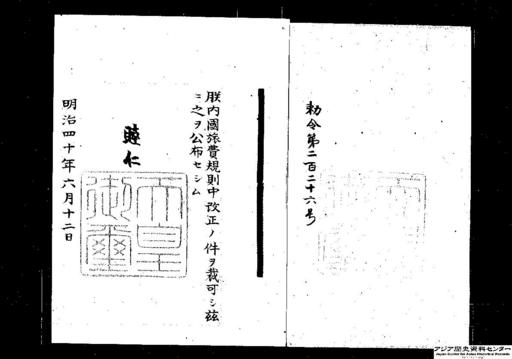 勅令第二百二十六号
朕内國旅費規則中改正ノ件ヲ裁可シ茲
ニ之ヲ公布セシム
睦仁
天皇
御璽
明治四十年六月十二日
アジア歴史資料センター
Japan Center for Asian Historical Records